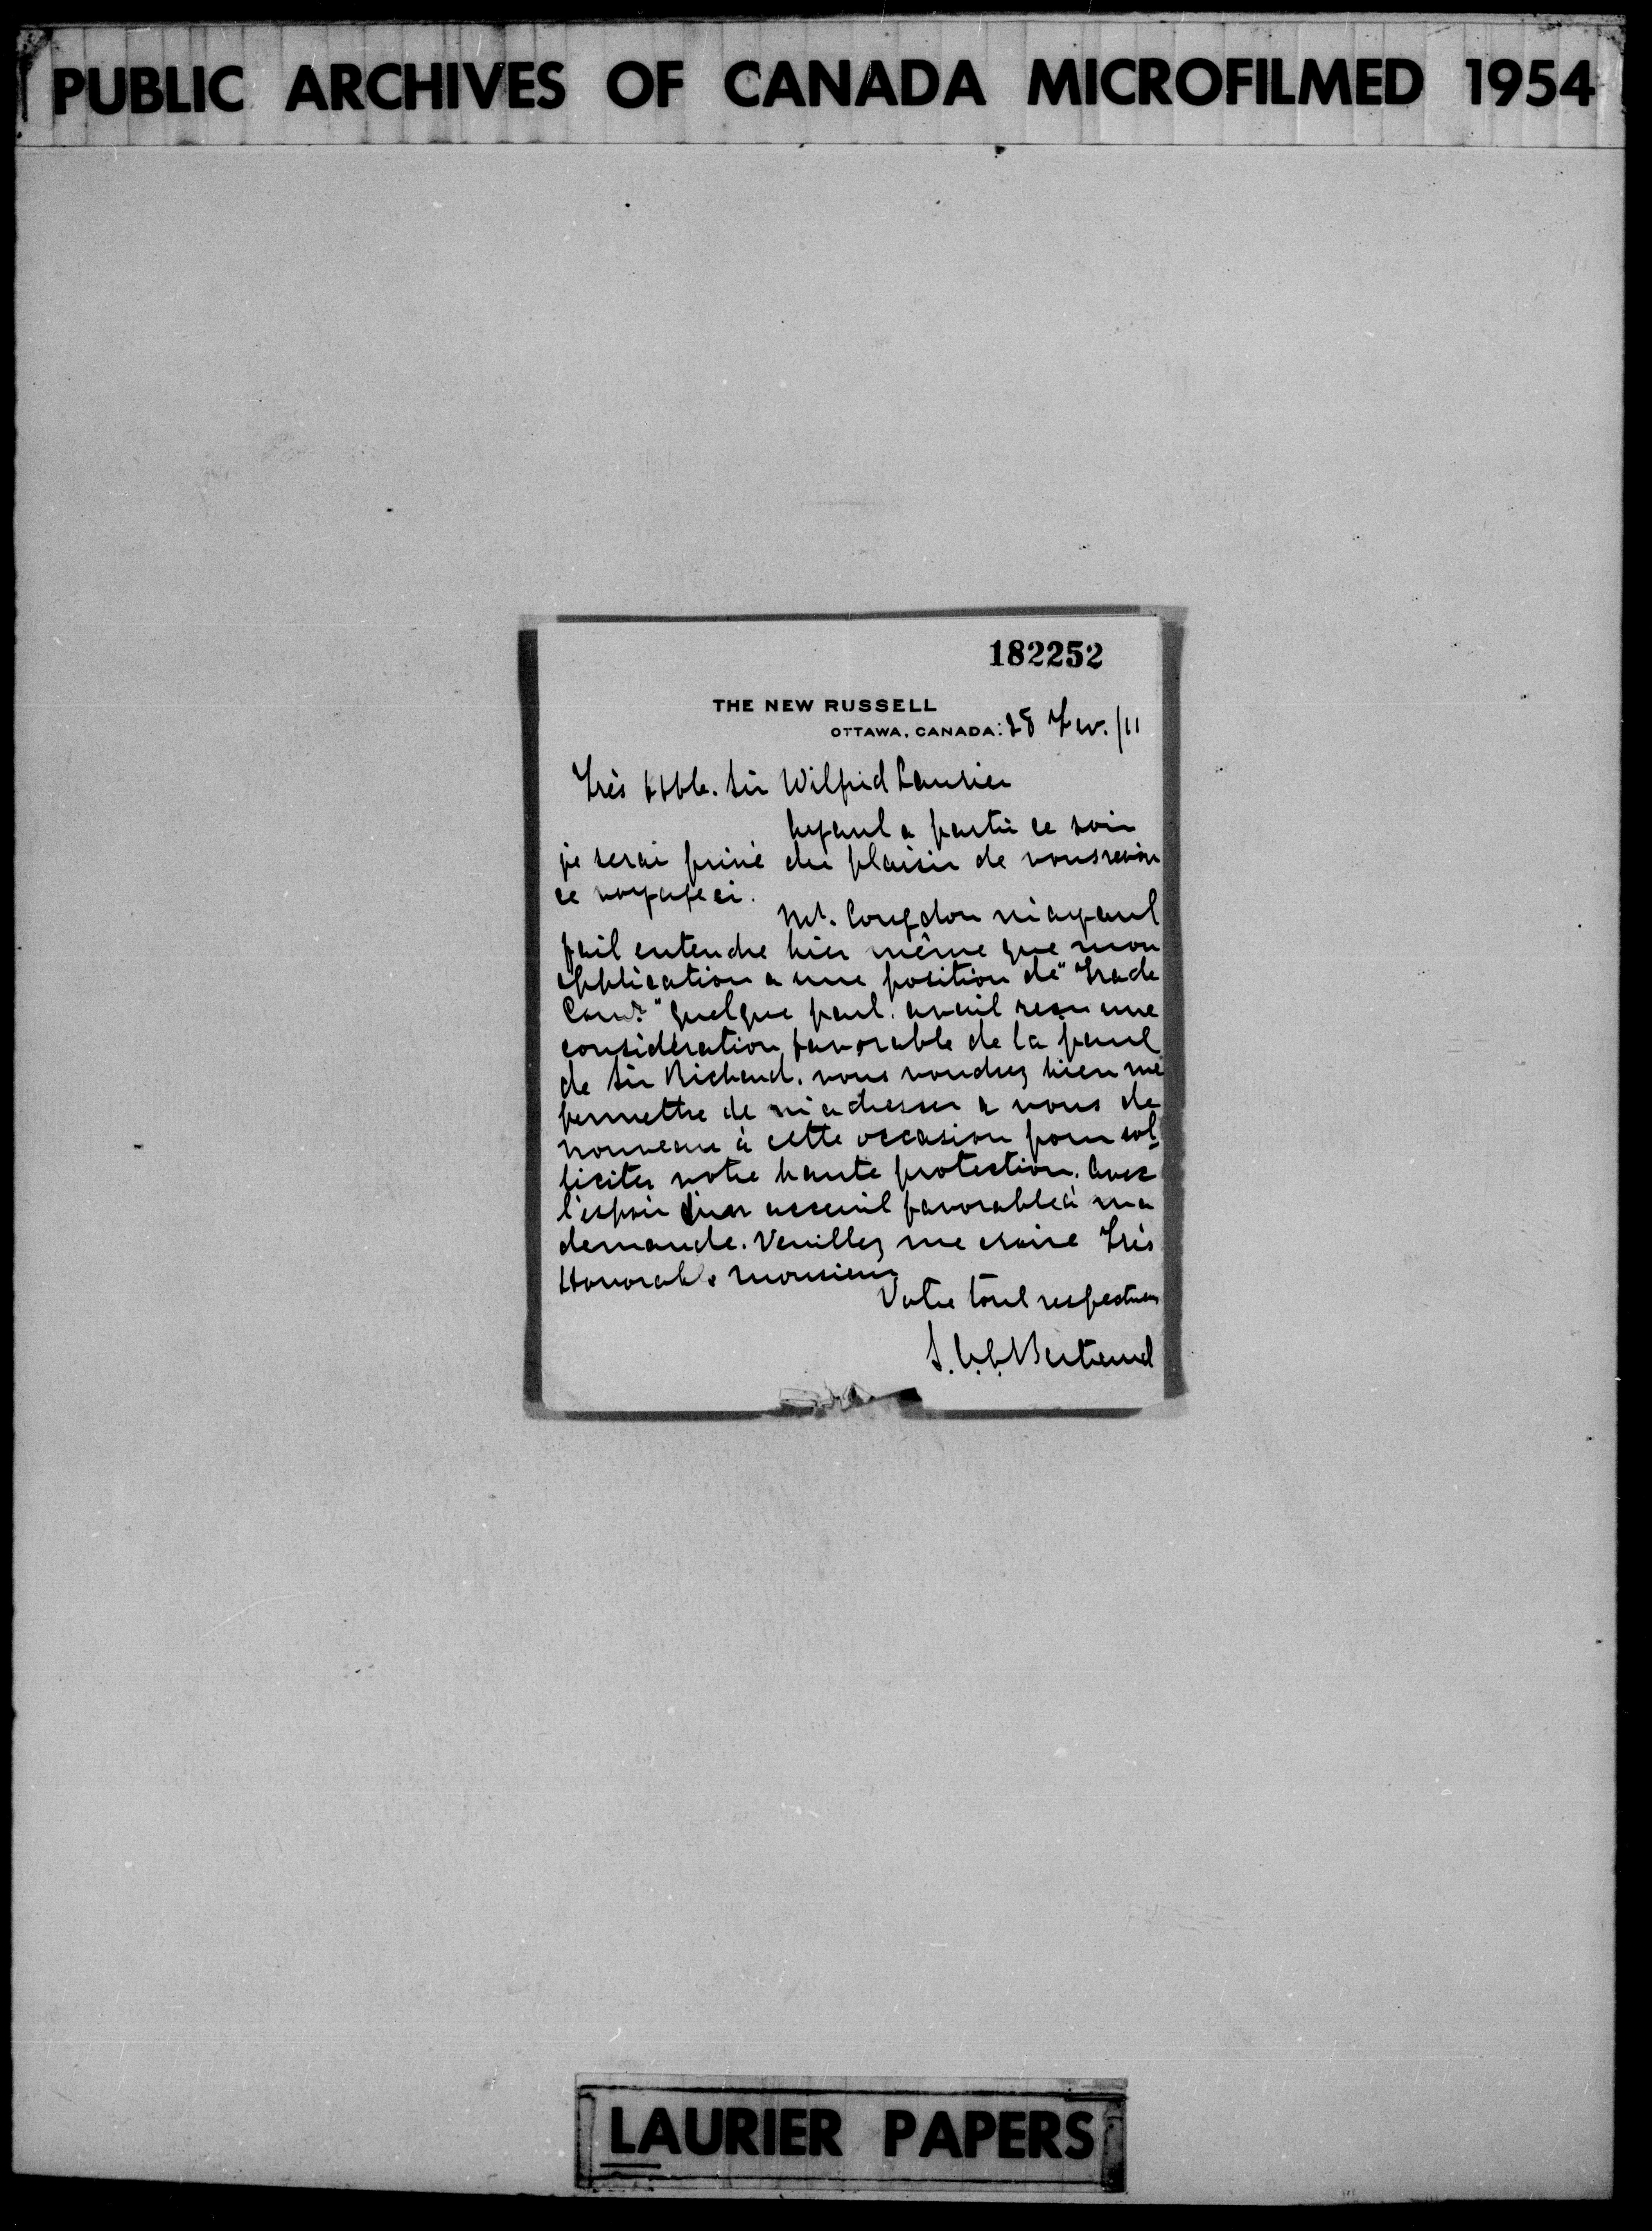 PUBLIC ARCHIVES OF CANADA MICROFILMED 1954
182252
THE NEW RUSSELL
OTTAWA, CANADA: 28 Fev. /11
Très Hble. Sir Wilfrid Laurier
Ayant a partir ce soir
je serai privé du plaisir de vous revoir
ce voyage ci.
Mr. Congdon m'ayant
fait entendre hier même que mon
application a une position de "Trade
Comr." quelque part. avait reçu une
considération favorable de la part
de Sir Richard. vous voudrez bien me
permettre de m'adresser a vous de
nouveau à cette occasion pour sol-
liciter votre haute protection. Avec
l'espoir d'un acceuil favorable à ma
demande. Veuillez me croire Très
Honorable Monsieur
Votre tout respectueux
Bertrand
LAURIER PAPERS